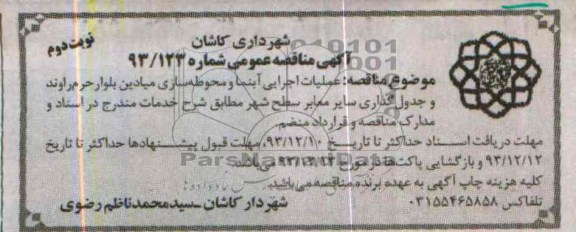 نوبت دوم
شهرداری کاشان
آگهی مناقصه عمومی شماره ۹۳/۱۲۳
موضوع مناقصه: عملیات اجرایی آبنما و محوطه‌سازی میادین بلوار حرم راوند
و جدول گذاری سایر معابر سطح شهر مطابق شرح خدمات مندرج در اسناد و
مدارک مناقصه و قرارداد منضم
مهلت دریافت اسناد حداکثر تا تاریخ ۹۳/۱۲/۱۰، مهلت قبول پیشنهادها حداکثر تا تاریخ
۹۳/۱۲/۱۲ و بازگشایی پاکت‌ها در مورخ می‌باشد.
کلیه هزینه چاپ آگهی به عهده برنده مناقصه می‌باشد.
تلفاکس ۰۳۱۵۵۴۶۵۸۵۸
شهردار کاشان ـ سیدمحمدناظم رضوی